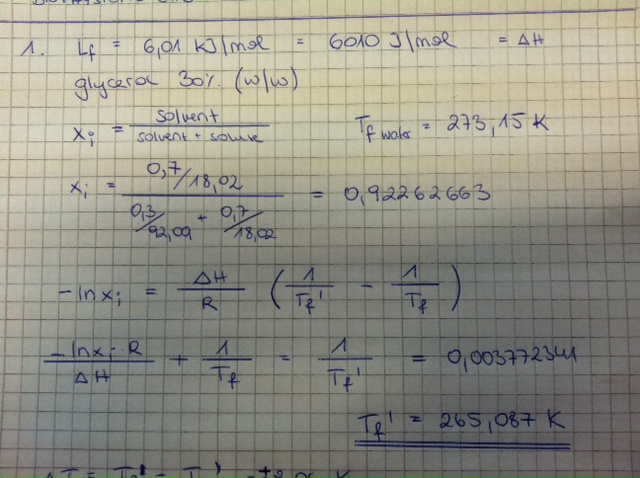 1. Lf = 6,01 KJ/mol = 6010 J/mol = ΔH
glycerol 30% (w/w)
xi = solvent / solvent + solute    Tf water = 273,15 K
xi = 0,7/18,02 / 0,3/92,09 + 0,7/18,02 = 0,92262663
-ln xi = ΔH/R (1/Tf' - 1/Tf)
-ln xi · R / ΔH + 1/Tf = 1/Tf' = 0,003772341
Tf' = 265,087 K